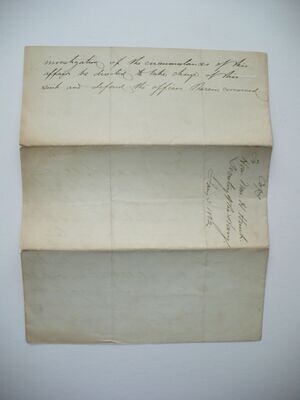 investigation of the circumstances of this
affair be directed to take charge of this
suit and defend the officer Therein concerned
Copy
Hon Wm H Hunt
Secretary of the Navy
Jany 5 1882